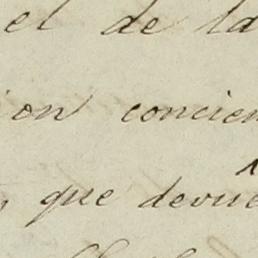 el de la
on concien
, que devue